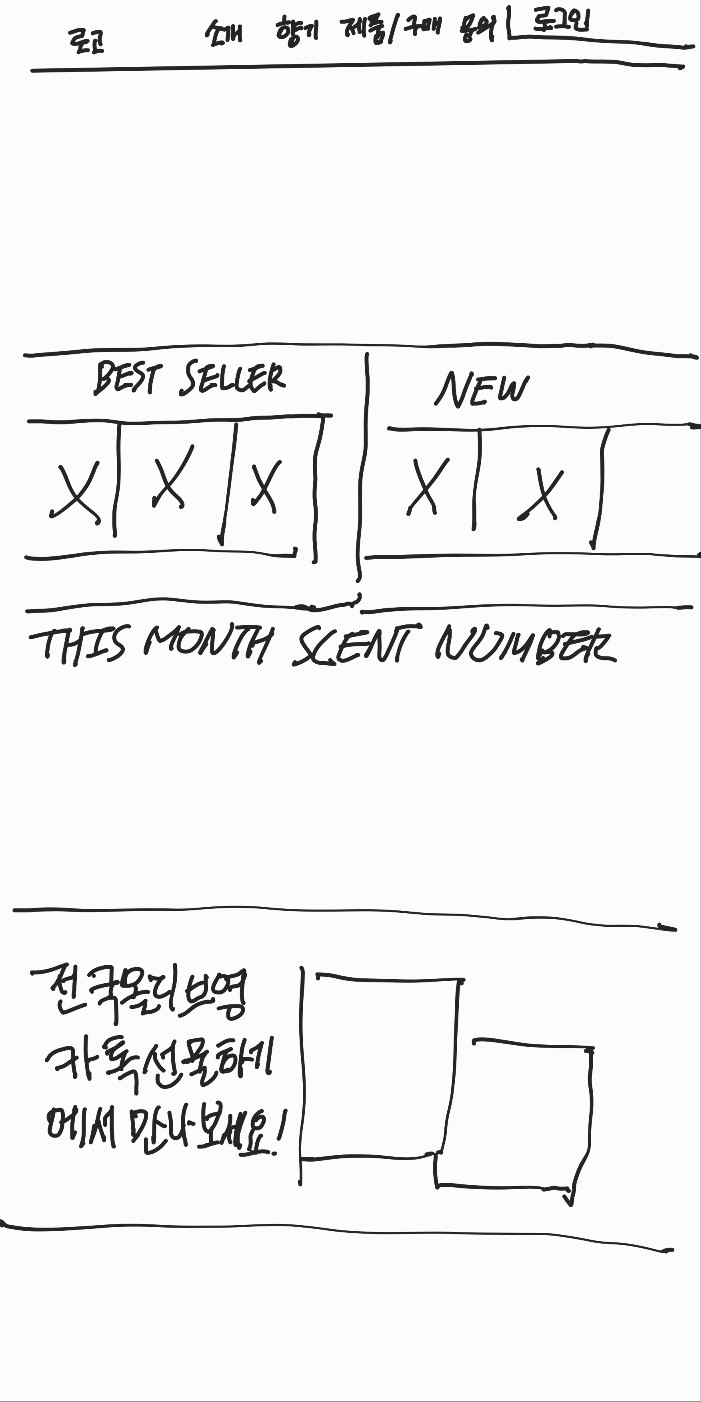 로고 소개 향기 제품/구매 문의 로그인
BEST SELLER NEW
X X X X X
THIS MONTH SCENT NUMBER
전국올리브영
카톡선물하기
에서 만나보세요!